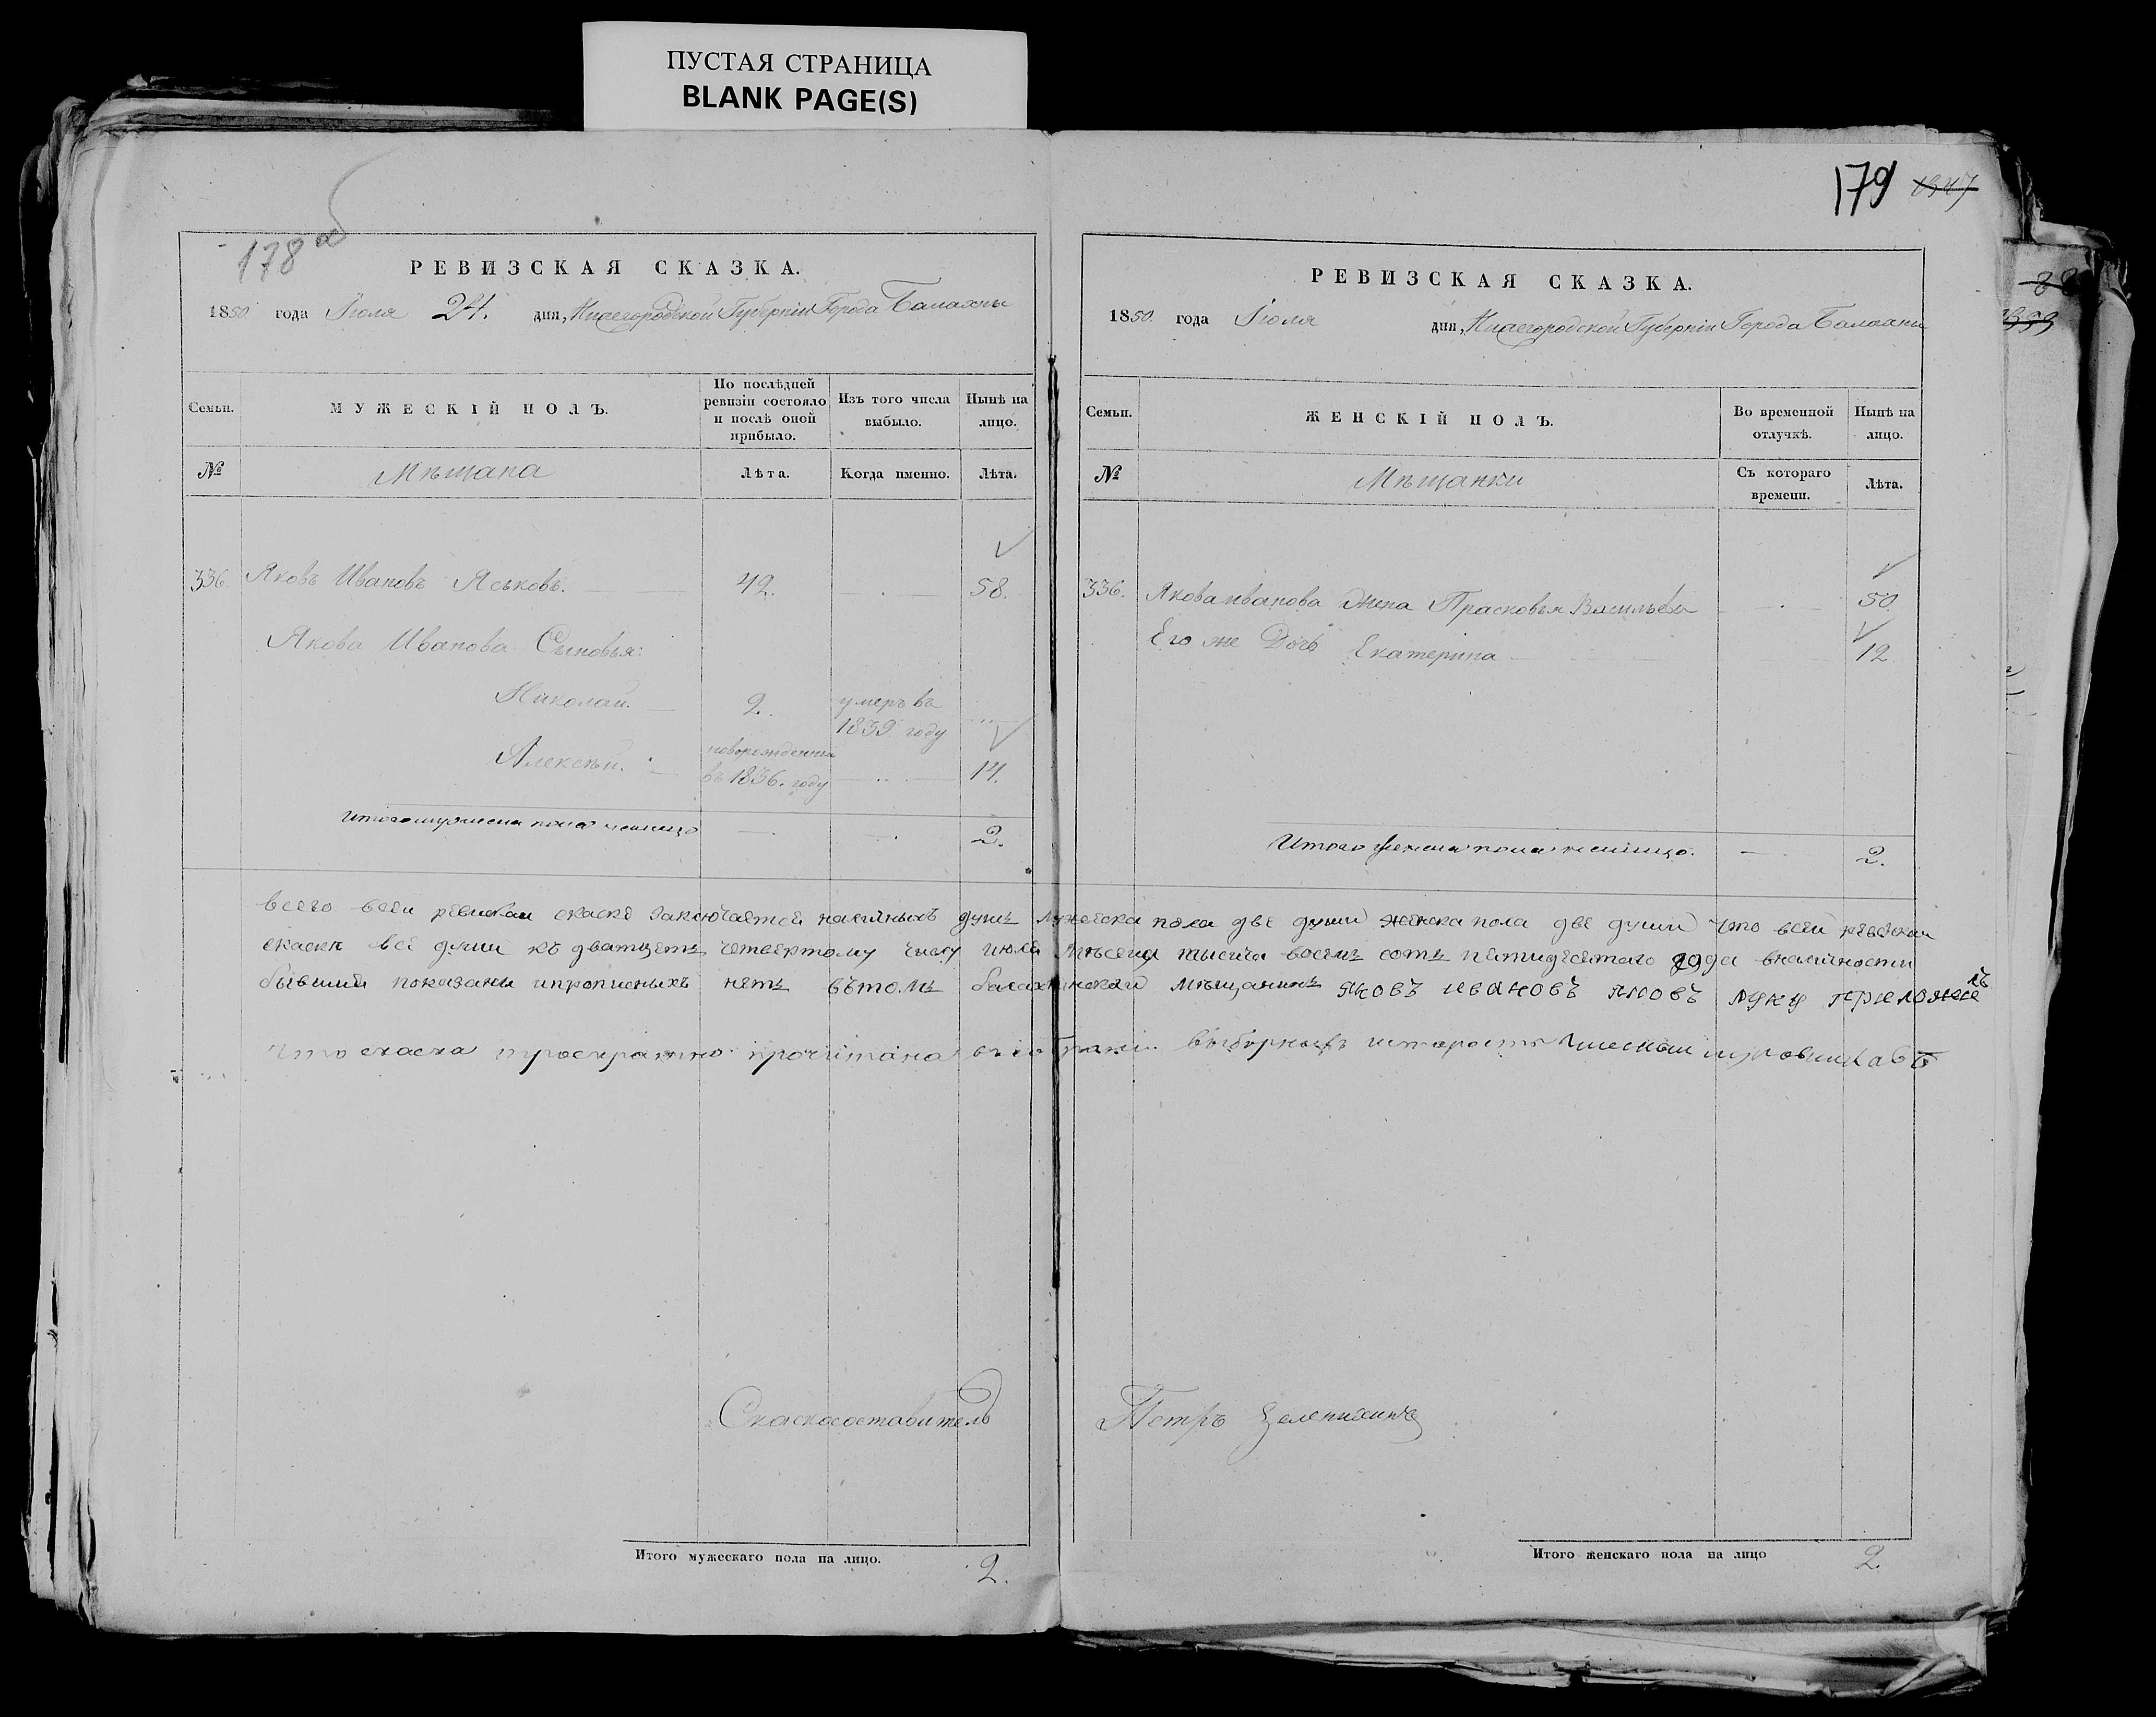 ПУСТАЯ СТРАНИЦА
BLANK PAGE(S)
178 об
РЕВИЗСКАЯ СКАЗКА.
1850 года Іюля 24. дня, Нижегородской Губерніи Города Балахны
Семьи.
МУЖЕСКІЙ ПОЛЪ.
По послѣдней ревизіи состояло и послѣ оной прибыло.
Изъ того числа выбыло.
Нынѣ на лицо.
№
Мѣщана
Лѣта.
Когда именно.
Лѣта.
336. Яковъ Ивановъ Яськовъ. 42. 58.
Якова Иванова Сыновья:
Николай. 2. умеръ въ 1839 году
Алексѣй. новорожденный въ 1836. году 14.
Итого мужеска пола налицо 2.
179 1347
РЕВИЗСКАЯ СКАЗКА.
1850 года Іюля дня, Нижегородской Губерніи Города Балахны
Семьи.
ЖЕНСКІЙ ПОЛЪ.
Во временной отлучкѣ.
Нынѣ на лицо.
№
Мѣщанки
Съ котораго времени.
Лѣта.
336. Якова иванова Жена Прасковья Васильева 50.
Его же Дочь Екатерина 12
Итого женска пола налицо. 2.
всего всей ревиской скаске заключается наличныхъ душъ мужеска пола две души женска пола две души что всей ревизской
скаски все души къ дватцетъ четвертому числу июля мѣсеца тысеча восемь сотъ петидесятого года вналичности
бывшия показаны ипрописныхъ нетъ вътомъ балахнинской мѣщанинъ яковъ ивановъ руку приложилъ
что скаска троекратно прочитана въ собраніи выборныхъ истароста
Скаскосоставитель Петръ
Итого мужескаго пола на лицо. 2.
Итого женскаго пола на лицо 2